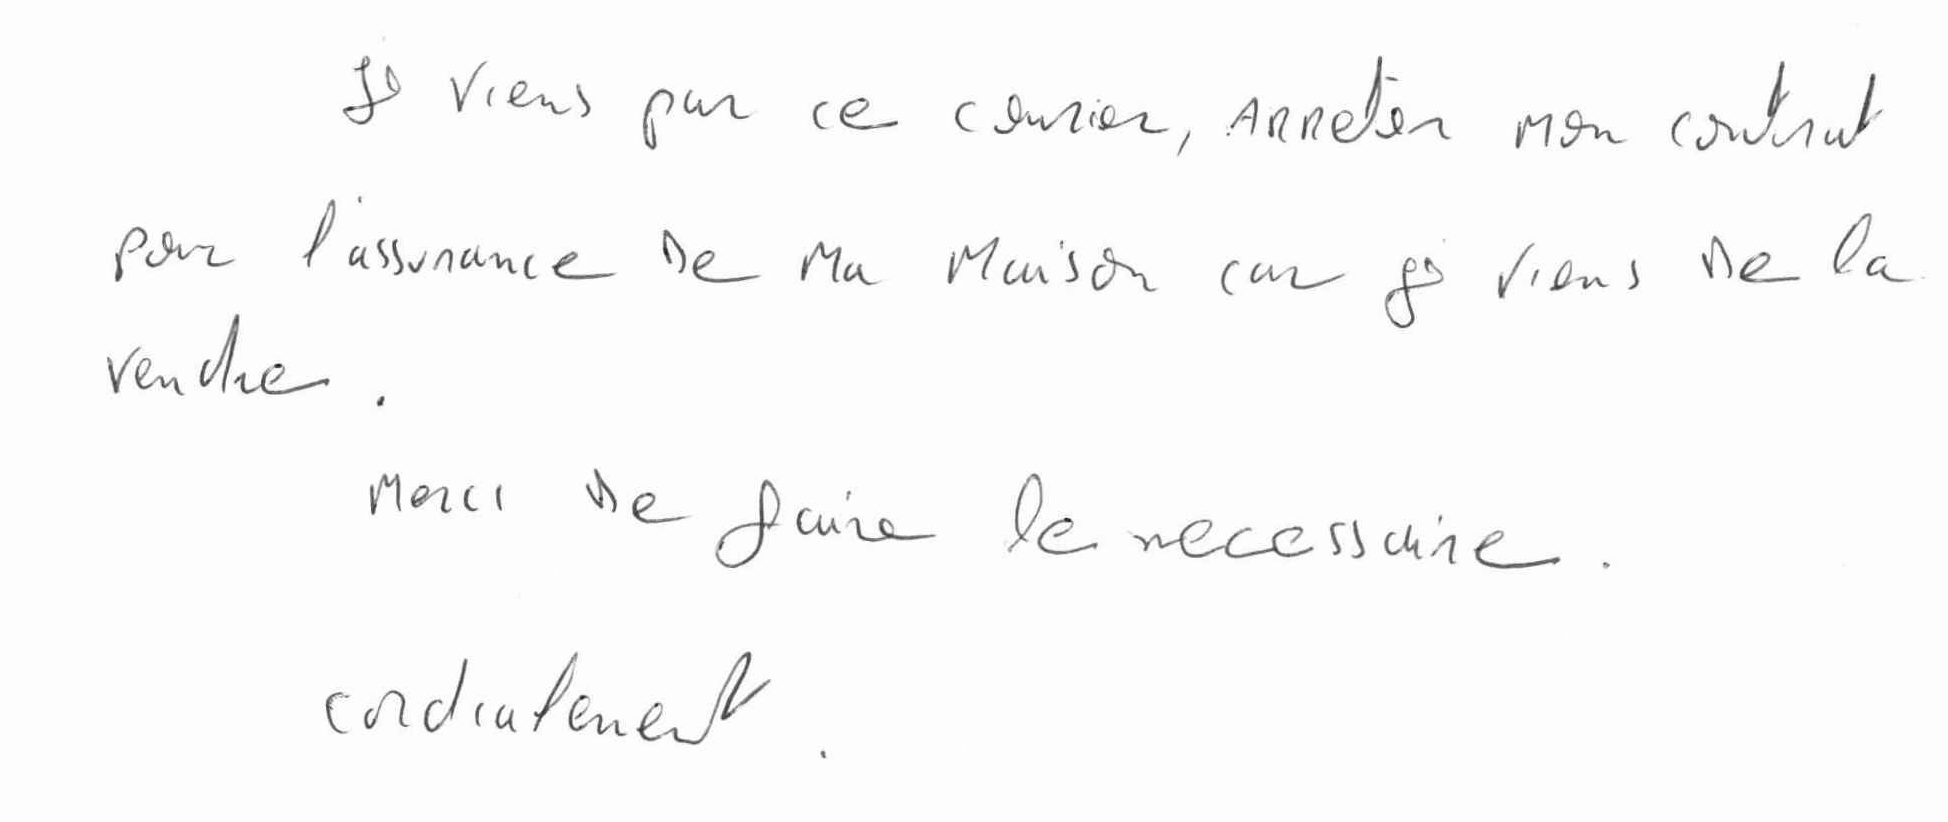 Je viens par ce courier, arreter mon contrat
pour l'assurance de ma maison car je viens de la
vendre.
Merci de faire le necessaire.
cordialement.